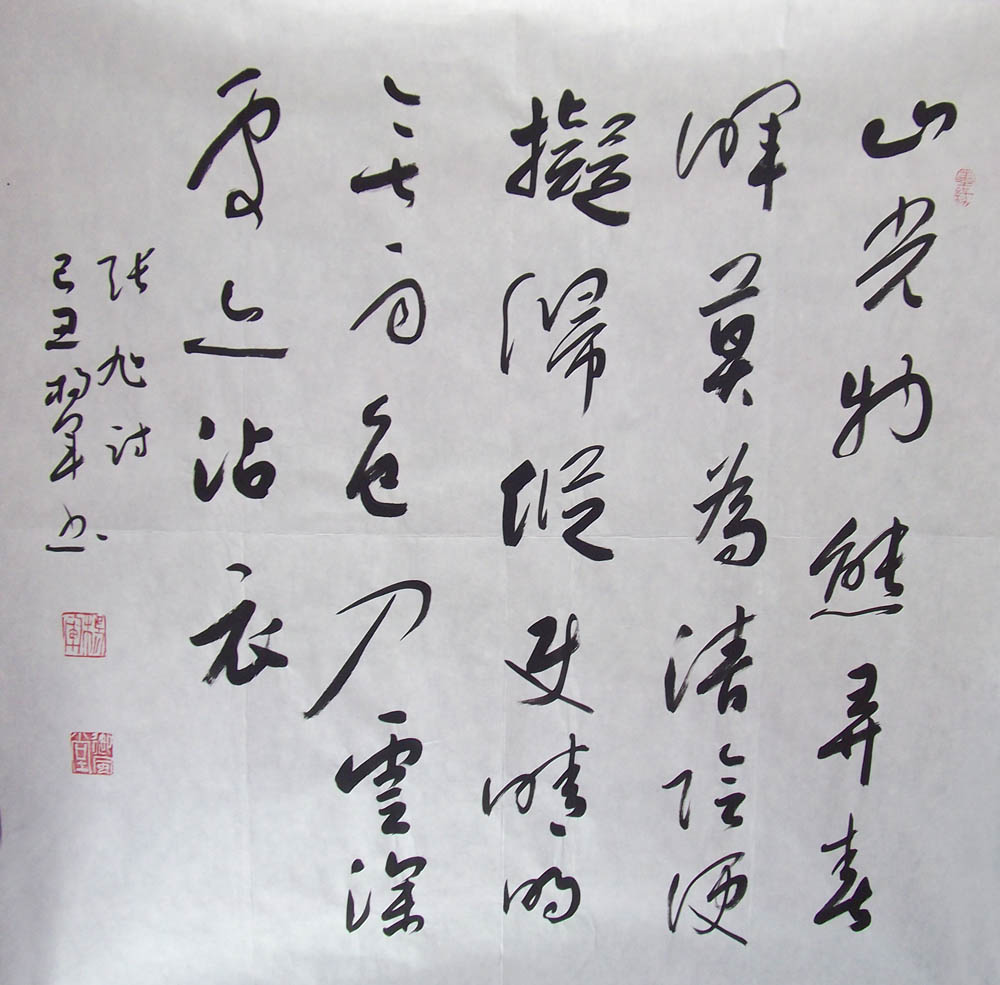 山光物態弄春
暉莫為清陰便
擬歸縱使晴明
無雨色入雲深
處亦沾衣
張旭詩
己丑楊軍書
楊軍